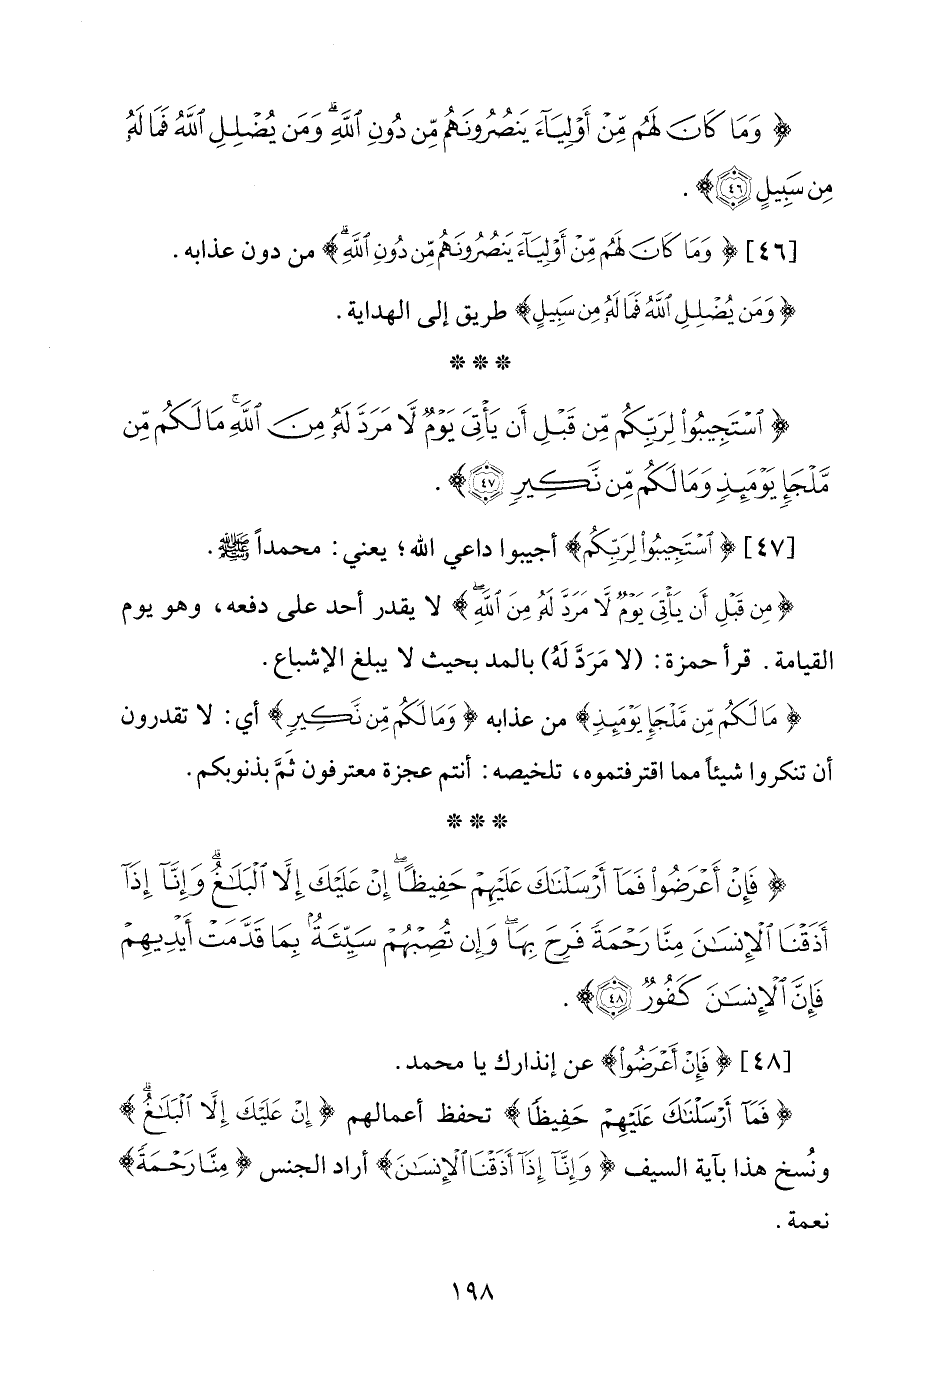 ﴿ وَمَا كَانَ لَهُم مِّنْ أَوْلِيَآءَ يَنصُرُونَهُم مِّن دُونِ ٱللَّهِ ۗ وَمَن يُضْلِلِ ٱللَّهُ فَمَا لَهُۥ
مِن سَبِيلٍ ﴿٤٦﴾ ﴾ .
[٤٦] ﴿ وَمَا كَانَ لَهُم مِّنْ أَوْلِيَآءَ يَنصُرُونَهُم مِّن دُونِ ٱللَّهِ ۗ ﴾ من دون عذابه .
﴿ وَمَن يُضْلِلِ ٱللَّهُ فَمَا لَهُۥ مِن سَبِيلٍ ﴾ طريق إلى الهداية .
* * *
﴿ ٱسْتَجِيبُوا۟ لِرَبِّكُم مِّن قَبْلِ أَن يَأْتِىَ يَوْمٌ لَّا مَرَدَّ لَهُۥ مِنَ ٱللَّهِ ۚ مَا لَكُم مِّن
مَّلْجَإٍ يَوْمَئِذٍ وَمَا لَكُم مِّن نَّكِيرٍ ﴿٤٧﴾ ﴾ .
[٤٧] ﴿ ٱسْتَجِيبُوا۟ لِرَبِّكُم ﴾ أجيبوا داعي الله؛ يعني: محمداً ﷺ .
﴿ مِن قَبْلِ أَن يَأْتِىَ يَوْمٌ لَّا مَرَدَّ لَهُۥ مِنَ ٱللَّهِ ۖ ﴾ لا يقدر أحد على دفعه، وهو يوم
القيامة . قرأ حمزة: (لا مَرَدَّ لَهُ) بالمد بحيث لا يبلغ الإشباع .
﴿ مَا لَكُم مِّن مَّلْجَإٍ يَوْمَئِذٍ ﴾ من عذابه ﴿ وَمَا لَكُم مِّن نَّكِيرٍ ﴾ أي: لا تقدرون
أن تنكروا شيئاً مما اقترفتموه، تلخيصه: أنتم عجزة معترفون ثَمَّ بذنوبكم .
* * *
﴿ فَإِنْ أَعْرَضُوا۟ فَمَآ أَرْسَلْنَٰكَ عَلَيْهِمْ حَفِيظًا ۖ إِنْ عَلَيْكَ إِلَّا ٱلْبَلَٰغُ ۗ وَإِنَّآ إِذَآ
أَذَقْنَا ٱلْإِنسَٰنَ مِنَّا رَحْمَةً فَرِحَ بِهَا ۖ وَإِن تُصِبْهُمْ سَيِّئَةٌۢ بِمَا قَدَّمَتْ أَيْدِيهِمْ
فَإِنَّ ٱلْإِنسَٰنَ كَفُورٌ ﴿٤٨﴾ ﴾ .
[٤٨] ﴿ فَإِنْ أَعْرَضُوا۟ ﴾ عن إنذارك يا محمد .
﴿ فَمَآ أَرْسَلْنَٰكَ عَلَيْهِمْ حَفِيظًا ﴾ تحفظ أعمالهم ﴿ إِنْ عَلَيْكَ إِلَّا ٱلْبَلَٰغُ ۗ ﴾
ونُسخ هذا بآية السيف ﴿ وَإِنَّآ إِذَآ أَذَقْنَا ٱلْإِنسَٰنَ ﴾ أراد الجنس ﴿ مِنَّا رَحْمَةً ﴾
نعمة .
١٩٨